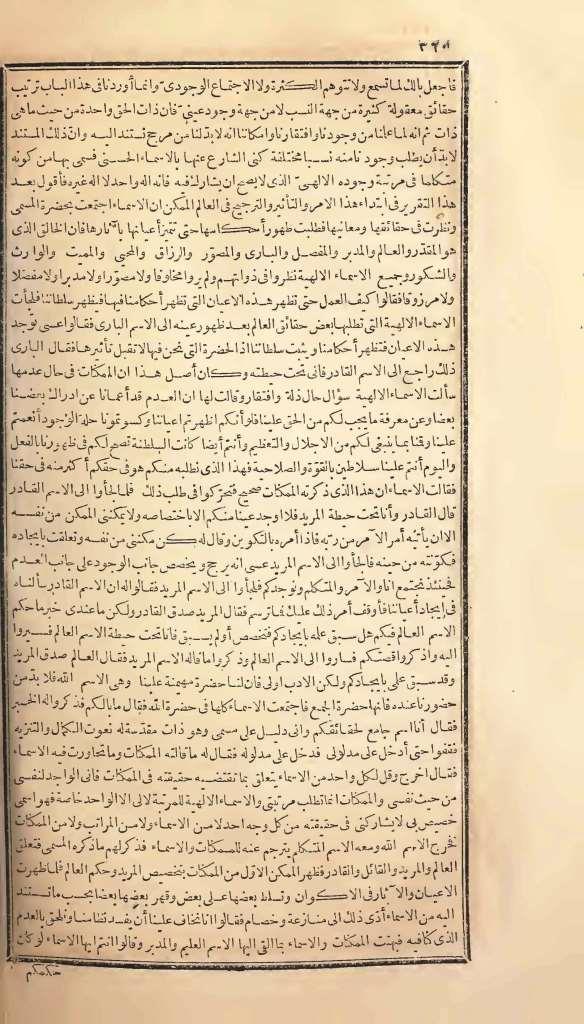 ٣٢٥
فاجعل بالك لما تسمع ولا تتوهم الكثرة ولا الاجتماع الوجودى وانما أوردنا فى هذا الباب ترتيب
حقائق معقولة كثيرة من جهة النسب لا من جهة وجود عينى فان ذات الحق واحدة من حيث ما هى
ذات ثم انه لما علمنا من وجودنا وافتقارنا وامكاننا انه لابد لنا من مرجح نستند اليه وان ذلك المستند
لابد أن يطلب وجودنا منه نسبا مختلفة كنى الشارع عنها بالاسماء الحسنى فسمى بها من كونه
متكلما فى مرتبة وجوده الالهى الذى لا يصح ان يشارك فيه فانه اله واحد لا اله غيره فأقول بعد
هذا التقرير فى ابتداء هذا الامر والتأثير والترجيح فى العالم الممكن ان الاسماء اجتمعت بحضرة المسمى
ونظرت فى حقائقها ومعانيها فطلبت ظهور أحكامها حتى تتميز أعيانها بآثارها فان الخالق الذى
هو المقدر والعالم والمدبر والمفصل والبارى والمصور والرزاق والمحيى والمميت والوارث
والشكور وجميع الاسماء الالهية نظروا فى ذواتهم ولم يروا مخلوقا ولا مصورا ولا مدبرا ولا مفصلا
ولا مرزوقا فقالوا كيف العمل حتى تظهر هذه الاعيان التى تظهر أحكامنا فيها فيظهر سلطاننا فلجأت
الاسماء الالهية التى تطلبها بعض حقائق العالم بعد ظهور عينه الى الاسم البارى فقالوا عسى توجد
هذه الاعيان فتظهر أحكامنا ويثبت سلطاننا اذ الحضرة التى نحن فيها لا تقبل تأثيرنا فقال البارى
ذلك راجع الى الاسم القادر فانى تحت حيطته وكان أصل هذا ان الممكنات فى حال عدمها
سألت الاسماء الالهية سؤال حال ذلة وافتقار وقالت لها ان العدم قد أعمانا عن ادراك بعضنا
بعضا وعن معرفة ما يجب لكم من الحق علينا فلو أنكم اظهرتم اعياننا وكسوتمونا حلة الوجود أنعمتم
علينا وقمنا بما ينبغى لكم من الاجلال والتعظيم وأنتم أيضا كانت السلطنة تصح لكم فى ظهورنا بالفعل
واليوم أنتم علينا سلاطين بالقوة والصلاحية فهذا الذى نطلبه منكم هو فى حقكم أكثر منه فى حقنا
فقالت الاسماء ان هذا الذى ذكرته الممكنات صحيح فتحركوا فى طلب ذلك فلما لجأوا الى الاسم القادر
قال القادر وأنا تحت حيطة المريد فلا اوجد عينا منكم الا باختصاصه ولا يمكننى الممكن من نفسه
الا ان يأتيه أمر الآمر من ربه فاذا أمره بالتكوين وقال له كن مكننى من نفسه وتعلقت بايجاده
فكونته من حينه فالجأوا الى الاسم المريد عسى انه يرجح ويخصص جانب الوجود على جانب العدم
فحينئذ نجتمع انا والآمر والمتكلم ونوجدكم فلجأوا الى الاسم المريد فقالوا له ان الاسم القادر سألناه
فى ايجاد أعياننا فأوقف أمر ذلك عليك فما ترسم فقال المريد صدق القادر ولكن ما عندى خبر ما حكم
الاسم العالم فيكم هل سبق علمه بايجادكم فنخصص أولم يسبق فانا تحت حيطة الاسم العالم فسيروا
اليه واذكروا قصتكم فساروا الى الاسم العالم وذكروا ما قاله الاسم المريد فقال العالم صدق المريد
وقد سبق علمى بايجادكم ولكن الادب اولى فان لنا حضرة مهيمنة علينا وهى الاسم الله فلابد من
حضورنا عنده فانها حضرة الجمع فاجتمعت الاسماء كلها فى حضرة الله فقال ما بالكم فذكروا له الخبر
فقال أنا اسم جامع لحقائقكم وانى دليل على مسمى وهو ذات مقدسة له نعوت الكمال والتنزيه
فقفوا حتى أدخل على مدلولى فدخل على مدلوله فقال له ما قالته الممكنات وما تحاورت فيه الاسماء
فقال اخرج وقل لكل واحد من الاسماء يتعلق بما تقتضيه حقيقته فى الممكنات فانى الواحد لنفسى
من حيث نفسى والممكنات انما تطلب مرتبتى والاسماء الالهية للمرتبة لا لى الا الواحد خاصة فهو اسمى
خصيص بى لا يشاركنى فى حقيقته من كل وجه احد لا من الاسماء ولا من المراتب ولا من الممكنات
فخرج الاسم الله ومعه الاسم المتكلم يترجم عنه للممكنات والاسماء فذكر لهم ما ذكره المسمى فتعلق
العالم والمريد والقائل والقادر فظهر الممكن الاول من الممكنات بتخصيص المريد وحكم العالم فلما ظهرت
الاعيان والآثار فى الاكوان وتسلط بعضها على بعض وقهر بعضها بعضا بحسب ما تستند
اليه من الاسماء أدى ذلك الى منازعة وخصام فقالوا انا نخاف علينا أن يفسد نظامنا ونلحق بالعدم
الذى كنا فيه فنبهت الممكنات والاسماء بما القى اليها الاسم العليم والمدبر وقالوا انتم ايها الاسماء لو كان
حكمكم